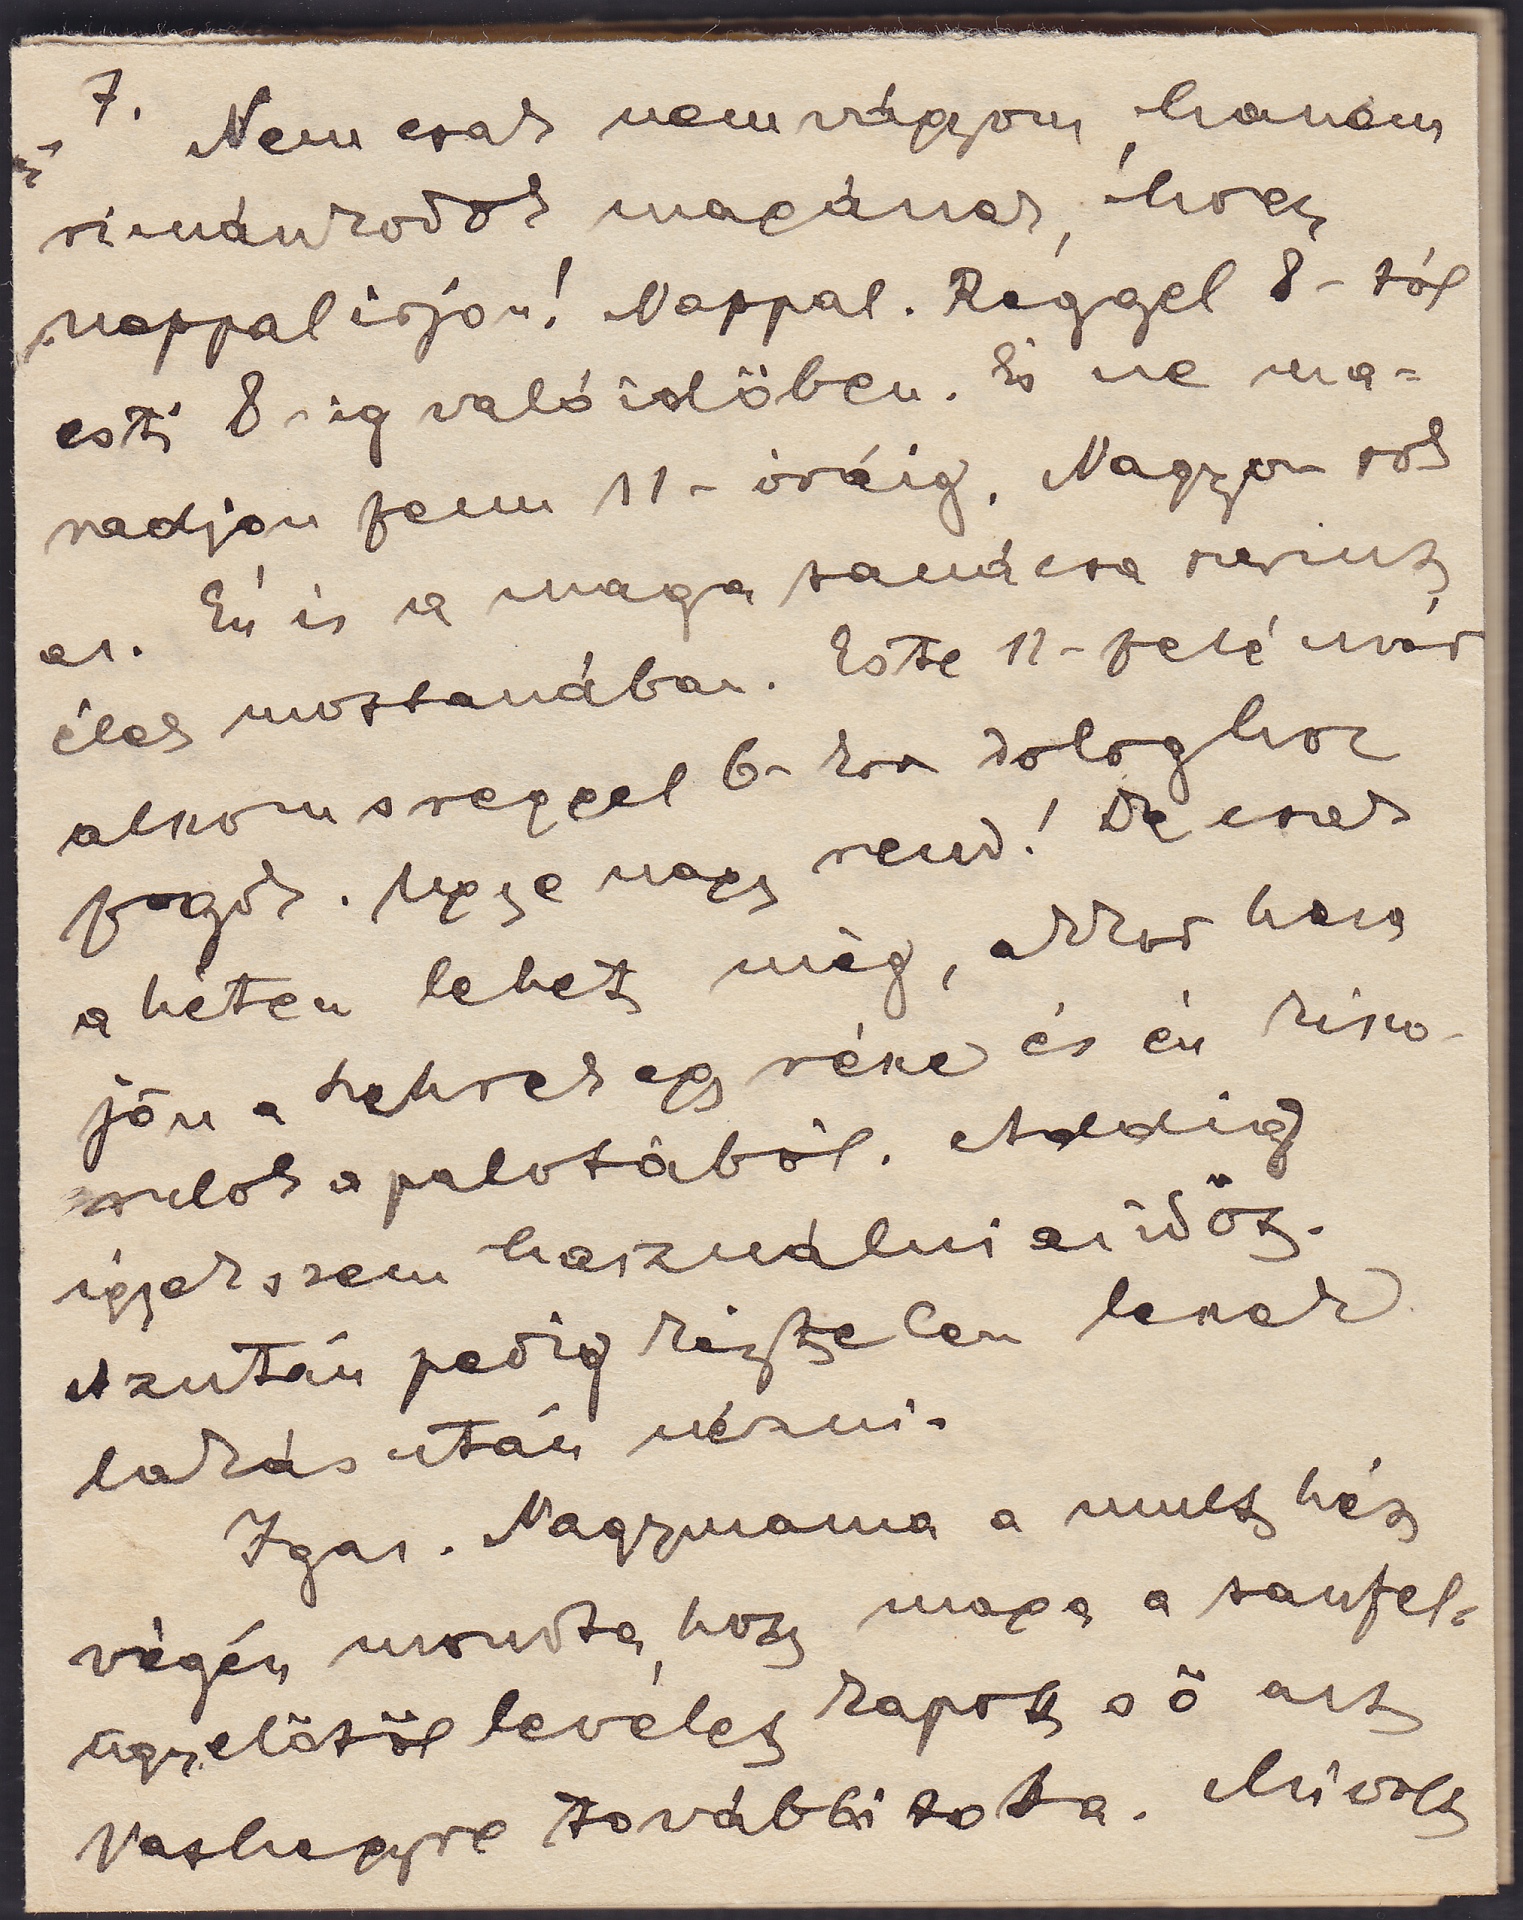 7.
Nem csak nem vágyom, hanem
rimánkodok magának, hogy
nappal írjon! Nappal. Reggel 8-tól
esti 8-ig való időben. És ne ma=
radjon fenn 11-óráig. Nagyon sok
az. Én is a maga tanácsa szerint
élek mostanában. Este 11-felé már
alszom s reggel 6-kor dologhoz
fogok. Ugye nagy rend! De csak
a héten lehet még, akkor haza
jön a népség és én kiszo-
rulok a palotából. Addig
igyekszem használni az időt.
Azután pedig kénytelen leszek
lakás után nézni.
Igaz. Nagymama a mult hét
végén mondta, hogy maga a tanfel-
ügyelőtől levelet kapott s ő azt
Vashegyre továbbította. Mi volt